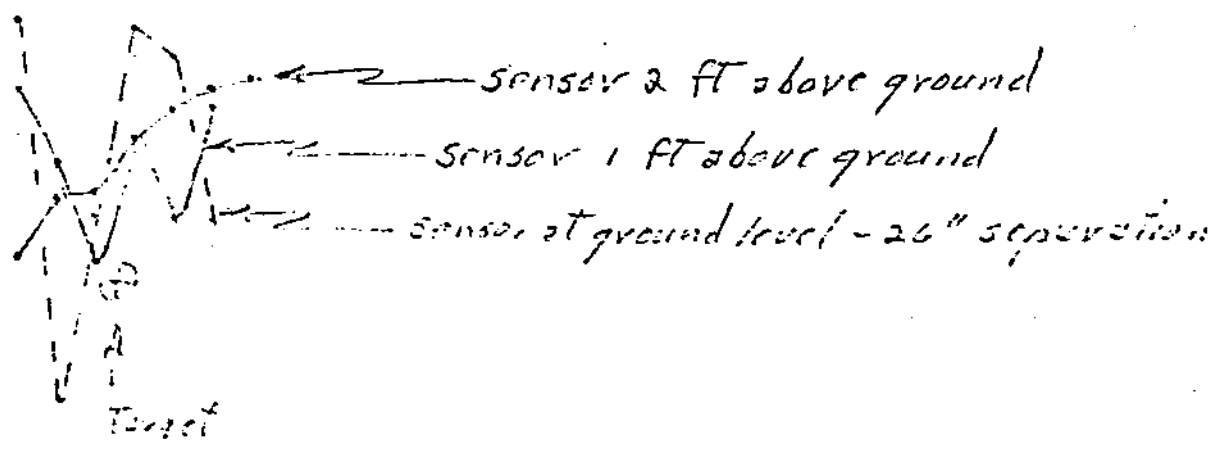 sensor 2 ft above ground
sensor 1 ft above ground
sensor at ground level - 26" separation
Target